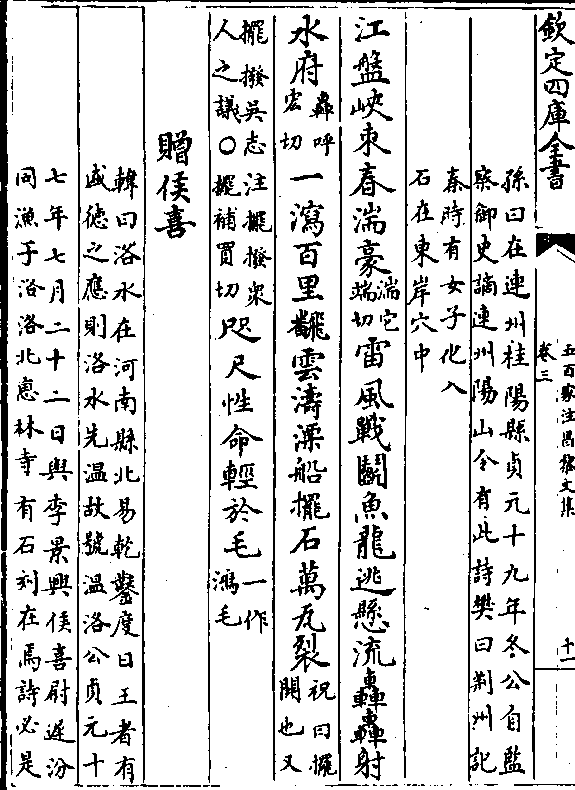 欽定四庫全書
五百家注昌黎文集
卷三
十一
孫曰在連州桂陽縣貞元十九年冬公自監
察御史謫連州陽山令有此詩樊曰荆州記
秦時有女子化入
石在東岸穴中
江盤峽束春湍豪
湍它
端切
雷風戰鬭魚龍逃懸流轟轟射
水府
轟呼
宏切
一瀉百里飜雲濤漂船擺石萬瓦裂
祝曰擺
開也又
擺撥吳志注擺撥衆
人之議〇擺補買切
咫尺性命輕於毛
一作
鴻毛
贈侯喜
韓曰洛水在河南縣北易乾鑿度曰王者有
盛德之應則洛水先温故號温洛公貞元十
七年七月二十二日與李景興侯喜尉遲汾
同漁于洛洛北惠林寺有石刻在焉詩必是